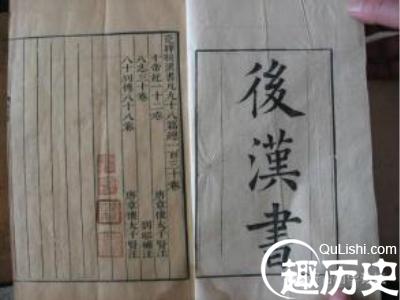 後漢書
范曄後漢書凡九十八篇總一百三十卷
十帝紀一十二卷 唐章懷太子賢注
八志三十卷 劉昭補注
八十列傳八十八卷 唐章懷太子賢注
QuLiShi.com
趣历史